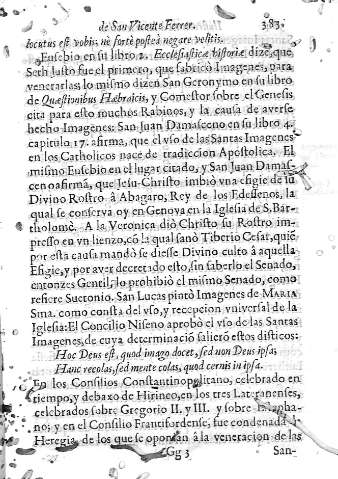 de San Vicente Ferrer. 383.
locutus est vobis: nè fortè posteà negare velitis.
Eusebio en su libro 2. Ecclesiasticæ historiæ dize, que
Seth Justo fue el primero, que fabricó Imagenes, para
venerarlas: lo mismo dizen San Geronymo en su libro
de Quæstionibus Hæbraicis, y Comestor sobre el Genesis
cita para esto muchos Rabinos, y la causa de averse
hecho Imagenes: San Juan Damasceno en su libro 4.
capitulo 17. afirma, que el vso de las Santas Imagenes
en los Catholicos nace de tradiccion Apostolica. El
mismo Eusebio en el lugar citado, y San Juan Damas-
ceno afirmã, que Jesu-Christo imbiò vna efigie de su
Divino Rostro à Abagaro, Rey de los Edessenos, la
qual se conserva oy en Genova en la Iglesia de S. Bar-
tholomè. A la Veronica diò Christo su Rostro im-
presso en vn lienzo, cõ la qual sanò Tiberio Cesar, quiẽ
por esta causa mandò se diesse Divino culto à aquella
Efigie, y por aver decretado esto, sin saberlo el Senado,
entonzes Gentil, lo prohibiò el mismo Senado, como
refiere Suetonio. San Lucas pintò Imagenes de MARIA
Sma. como consta del vso, y recepcion vniversal de la
Iglesia: El Concilio Niseno aprobò el vso de las Santas
Imagenes, de cuya determinació salierõ estos disticos:
Hoc Deus est, quod imago docet, sed non Deus ipsa;
Hanc recolas, sed mente colas, quod cernis in ipsa.
En los Consilios Constantinopolitano, celebrado en
tiempo, y debaxo de Hirineo, en los tres Lateranenses,
celebrados sobre Gregorio II. y III. y sobre
no; y en el Consilio Francfordense, fue condenada
Heregia, de los que se oponian à la veneracion de las
Gg 3 San-